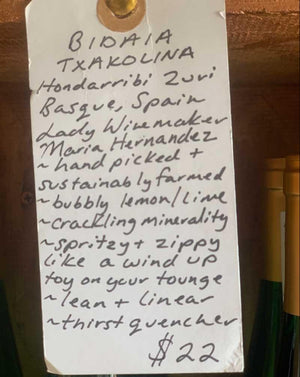 BIDAIA
TXAKOLINA
Hondarribi Zuri
Basque, Spain
Lady Winemaker
Maria Hernandez
~ hand picked +
sustainably farmed
~ bubbly lemon/lime
~ crackling minerality
~ spritzy + zippy
like a wind up
toy on your tounge
~ lean + linear
~ thirst quencher
$22